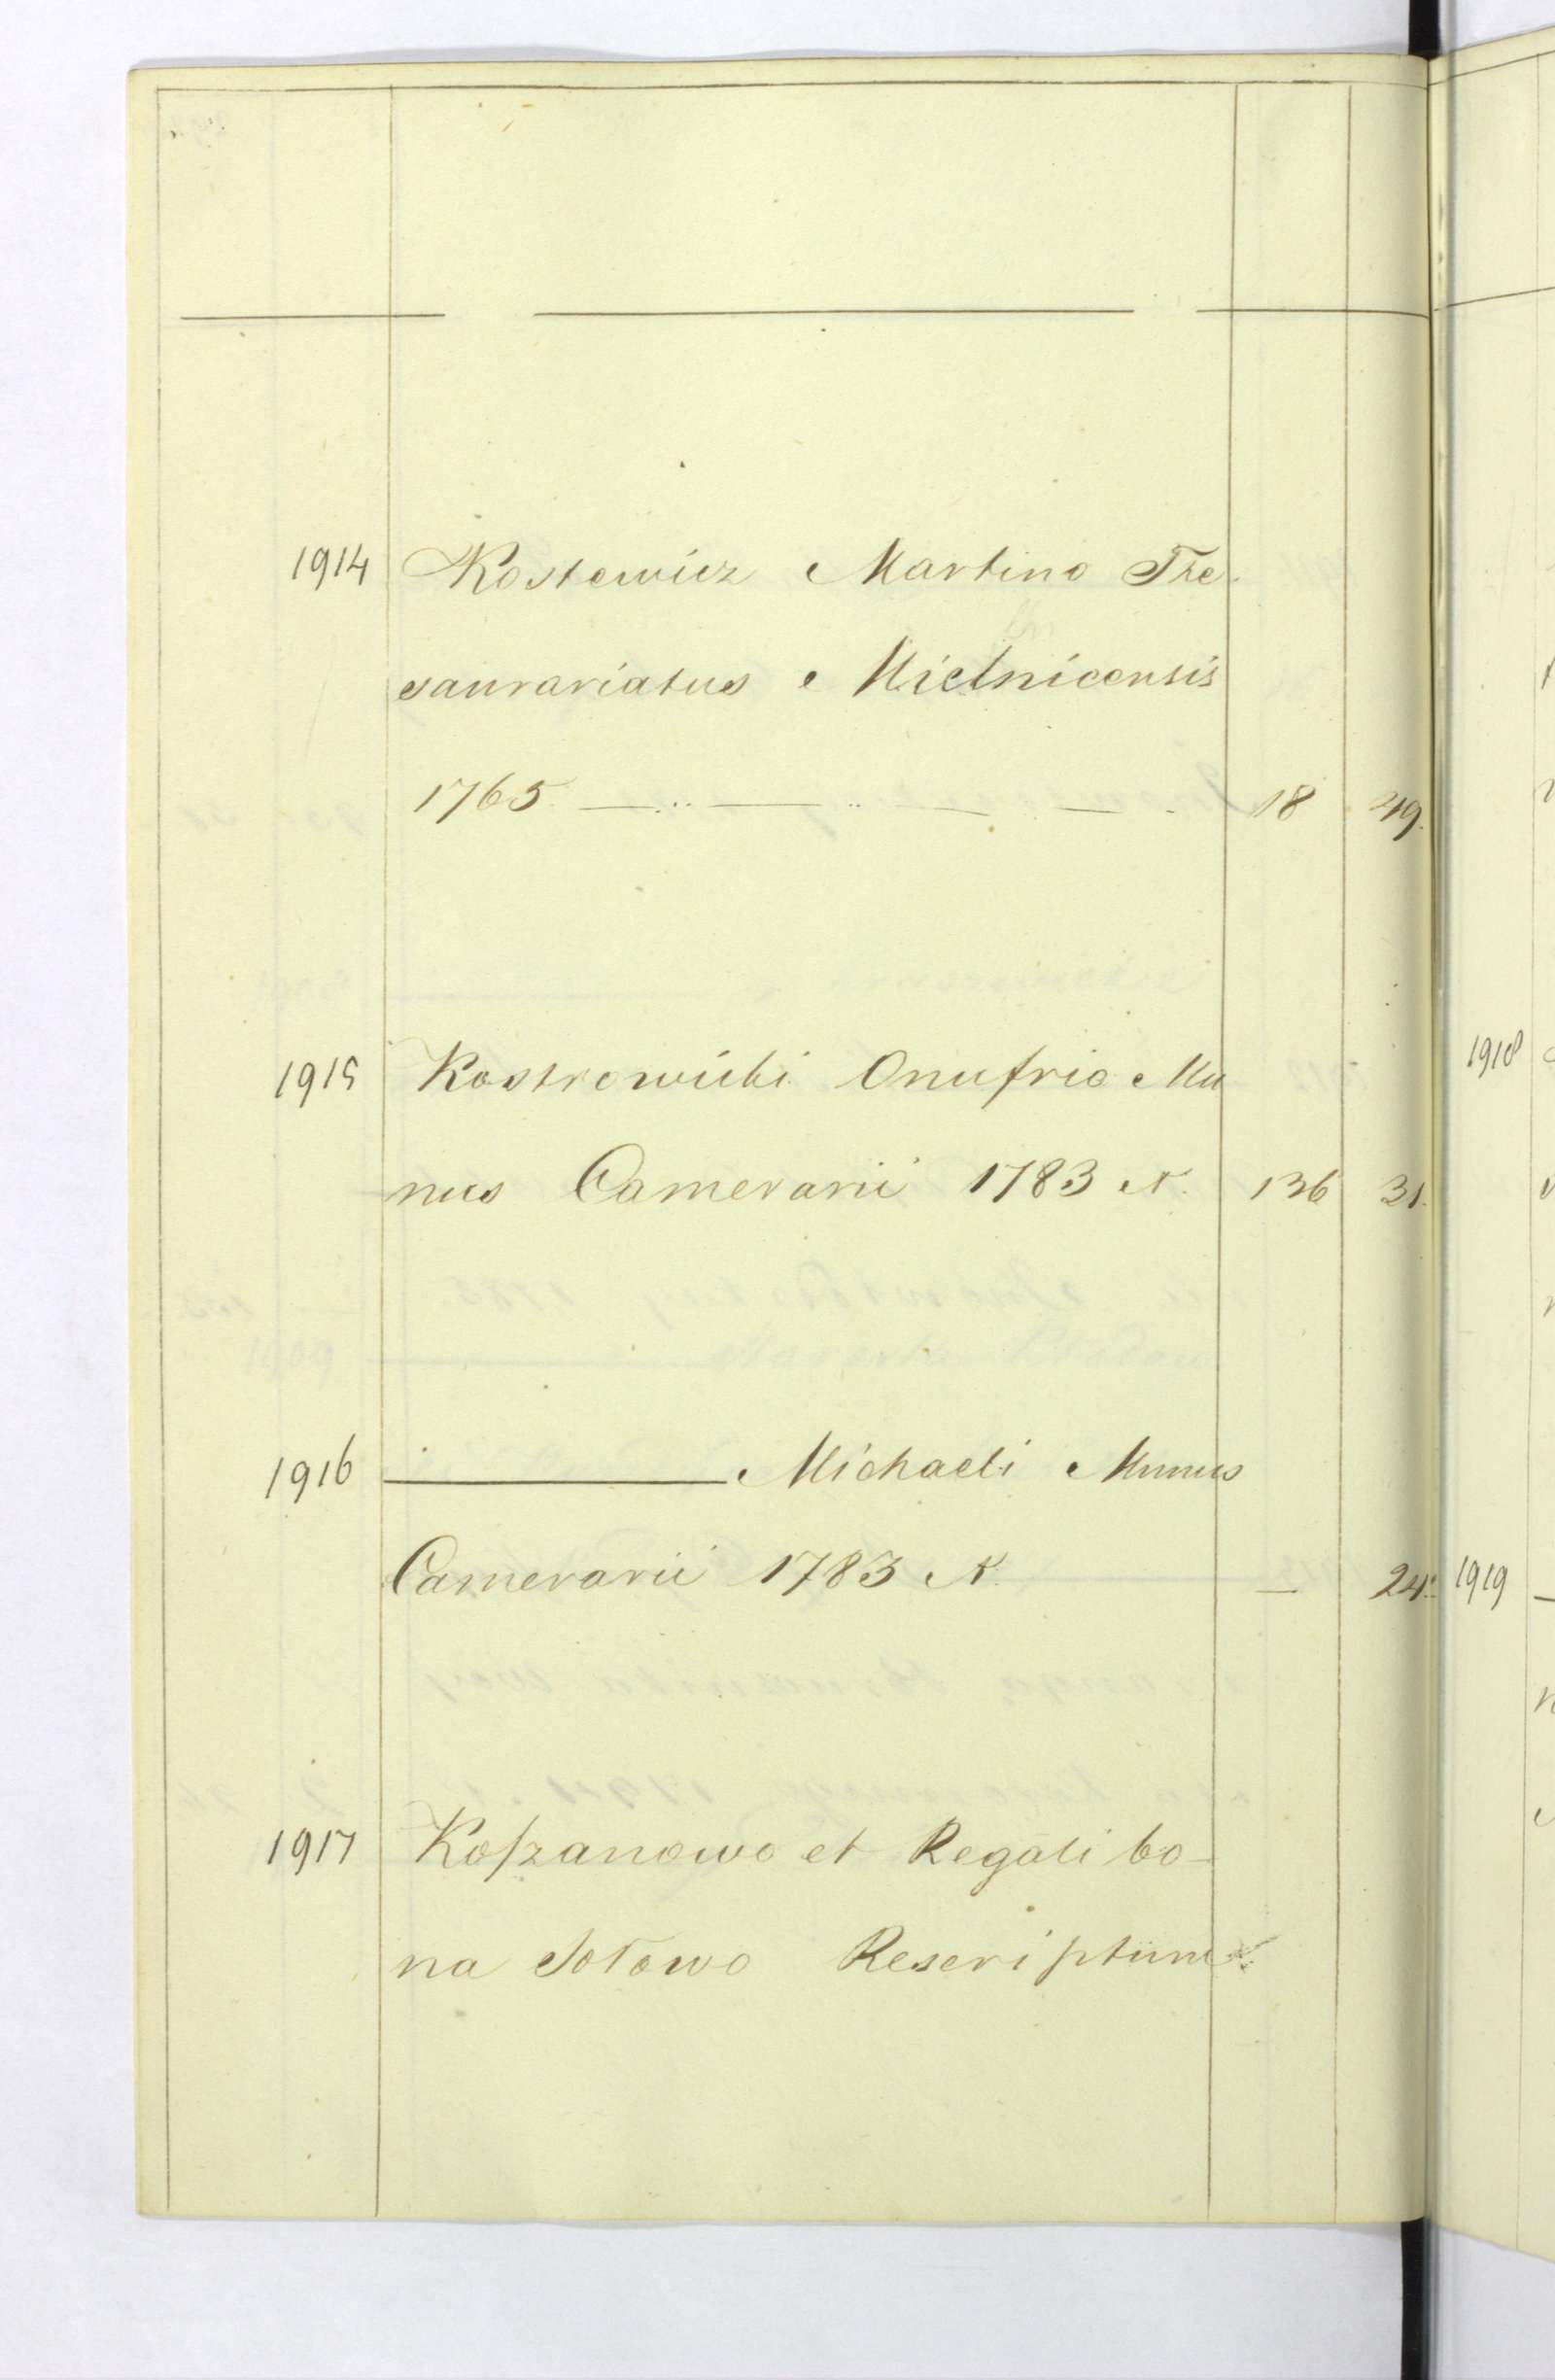 1914 Kostewicz Martino The-
saurariatus Mielnicensis
1765 — — — — 18 49.
1915 Kostrowicki Onufrio Mu
nus Camerarii 1783 N. 136 31.
1916 ——— Michaeli Munus
Camerarii 1783 N. — 24.
1917 Koszanowo et Regali bo-
na Sołowo Rescriptum
1918
1919